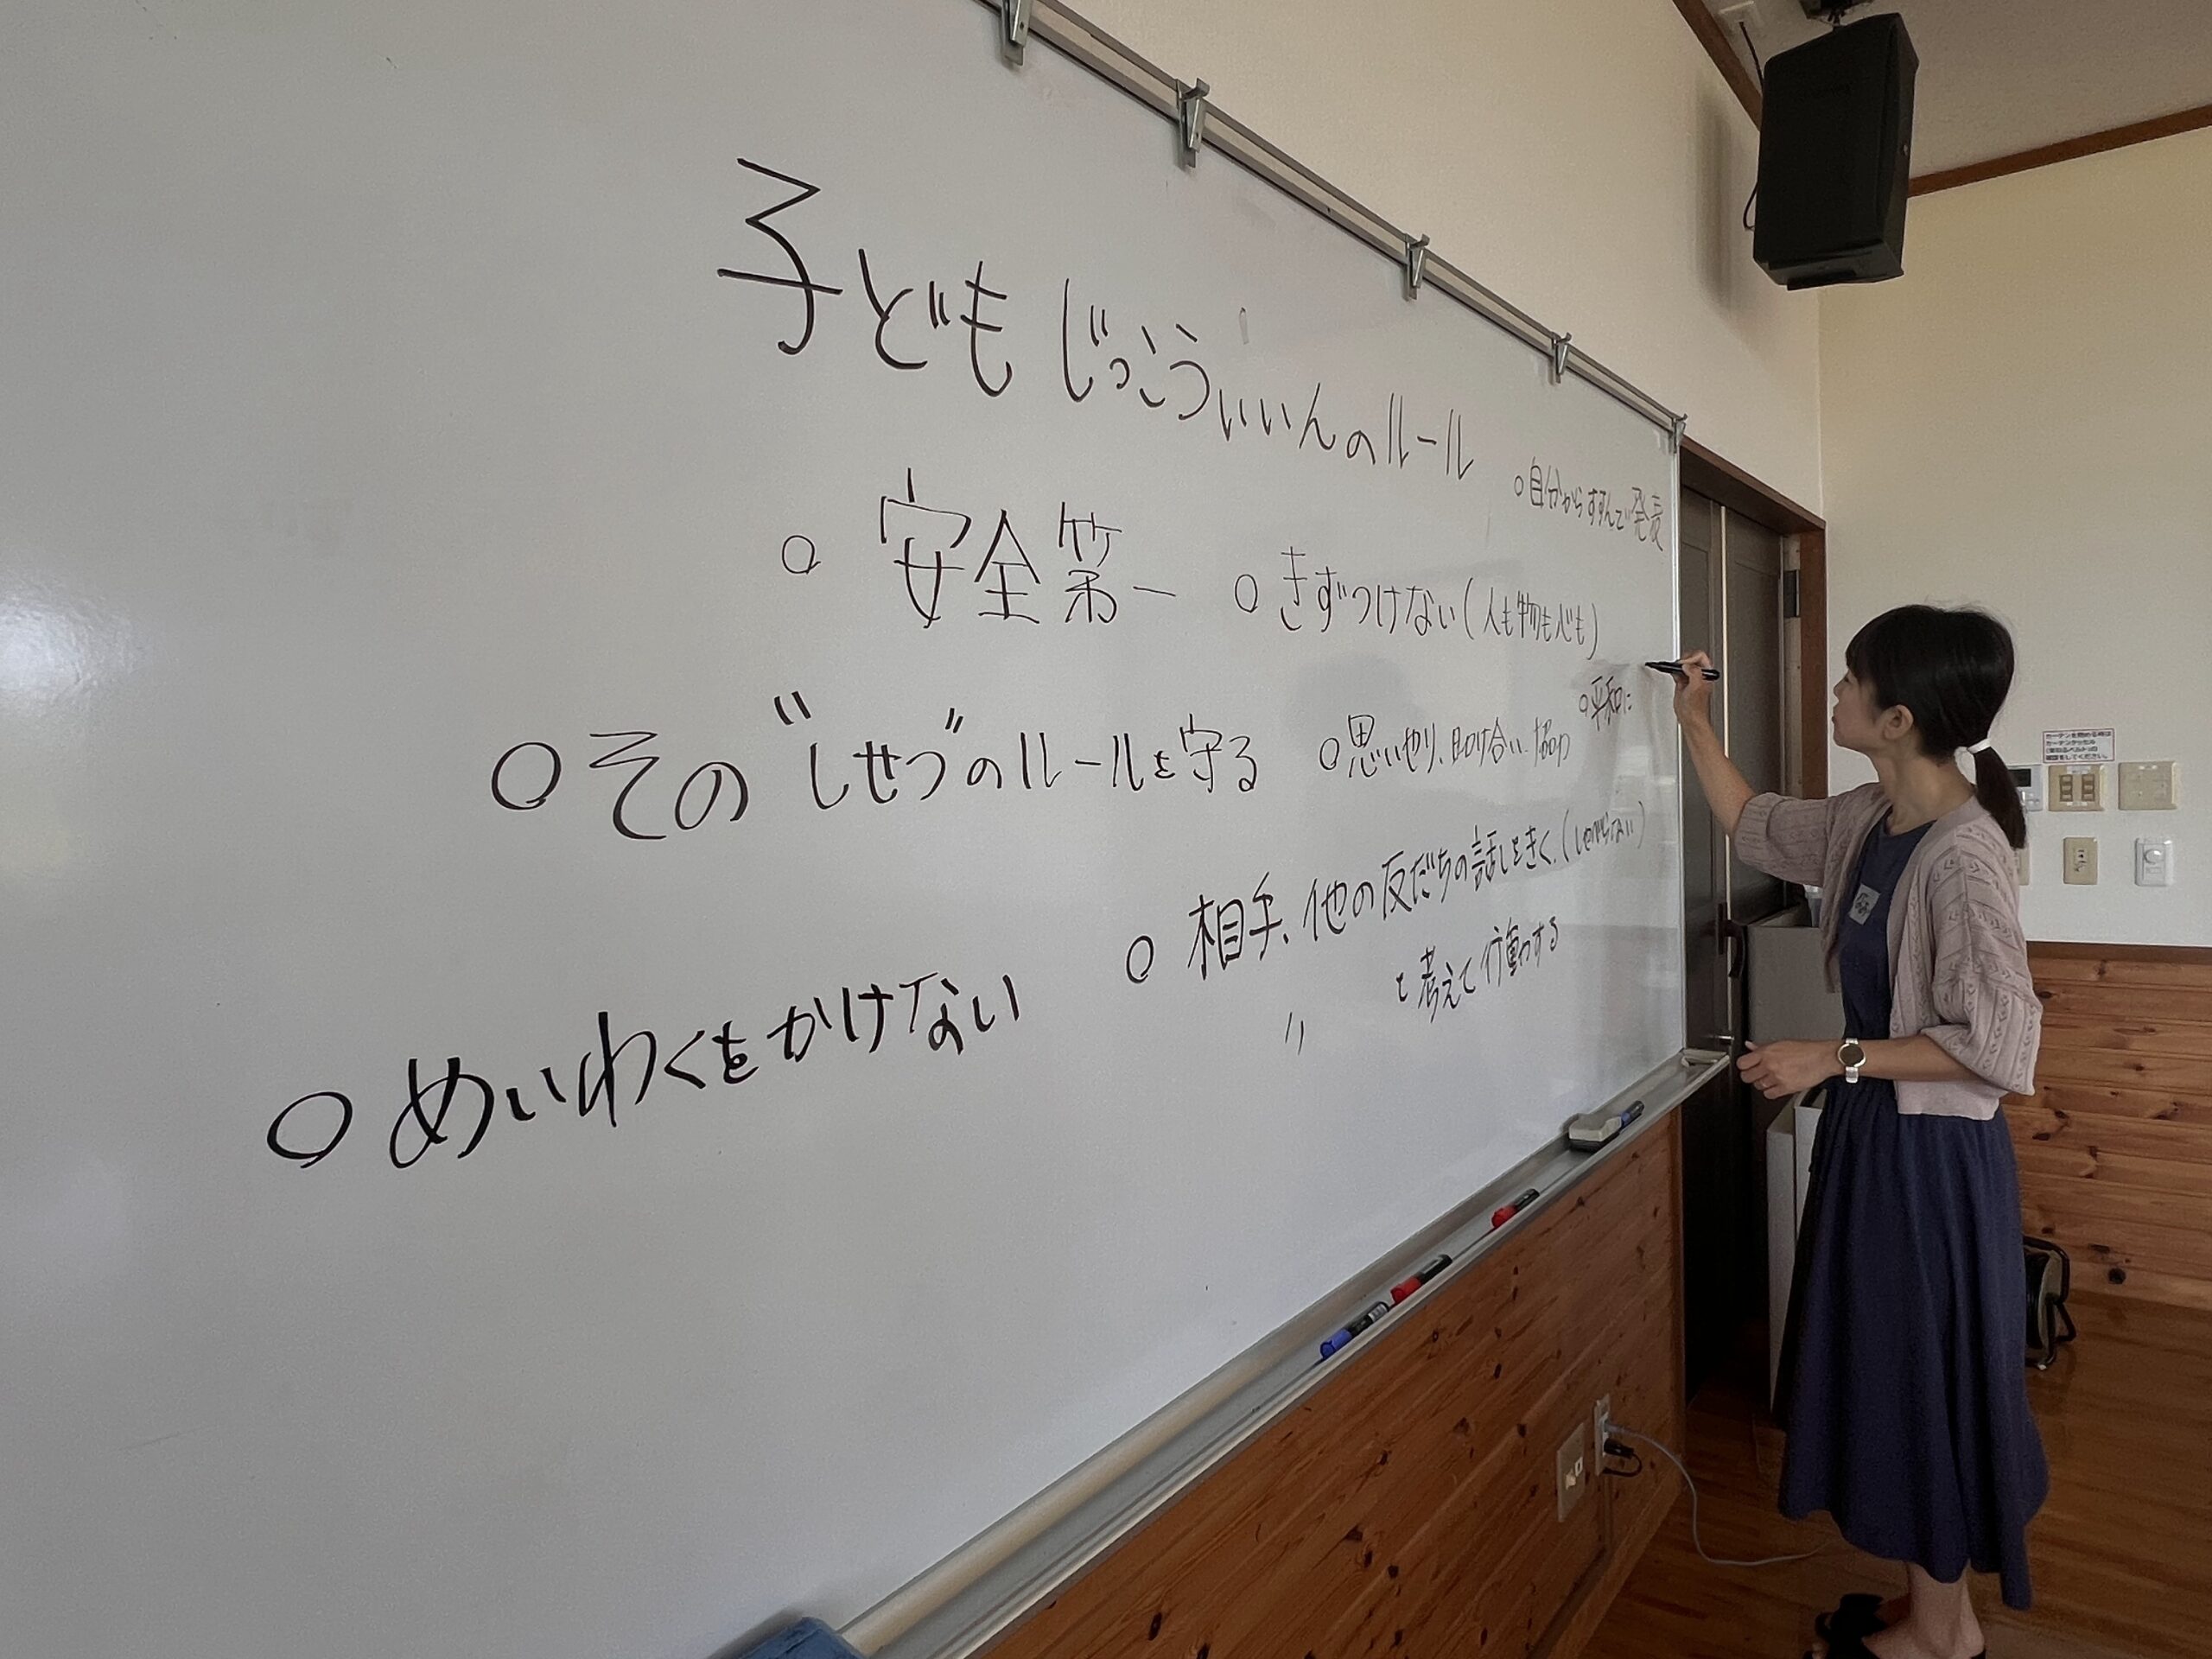 子どもじっこういいんのルール
○自分からすすんで発表
○安全第一
○きずつけない(人も物も心も)
○その"しせつ"のルールを守る
○思いやり、助け合い、協力
○平和に
○めいわくをかけない
○相手、他の友だちの話しをきく。(しゃべらない)
〃 と考えて行動する